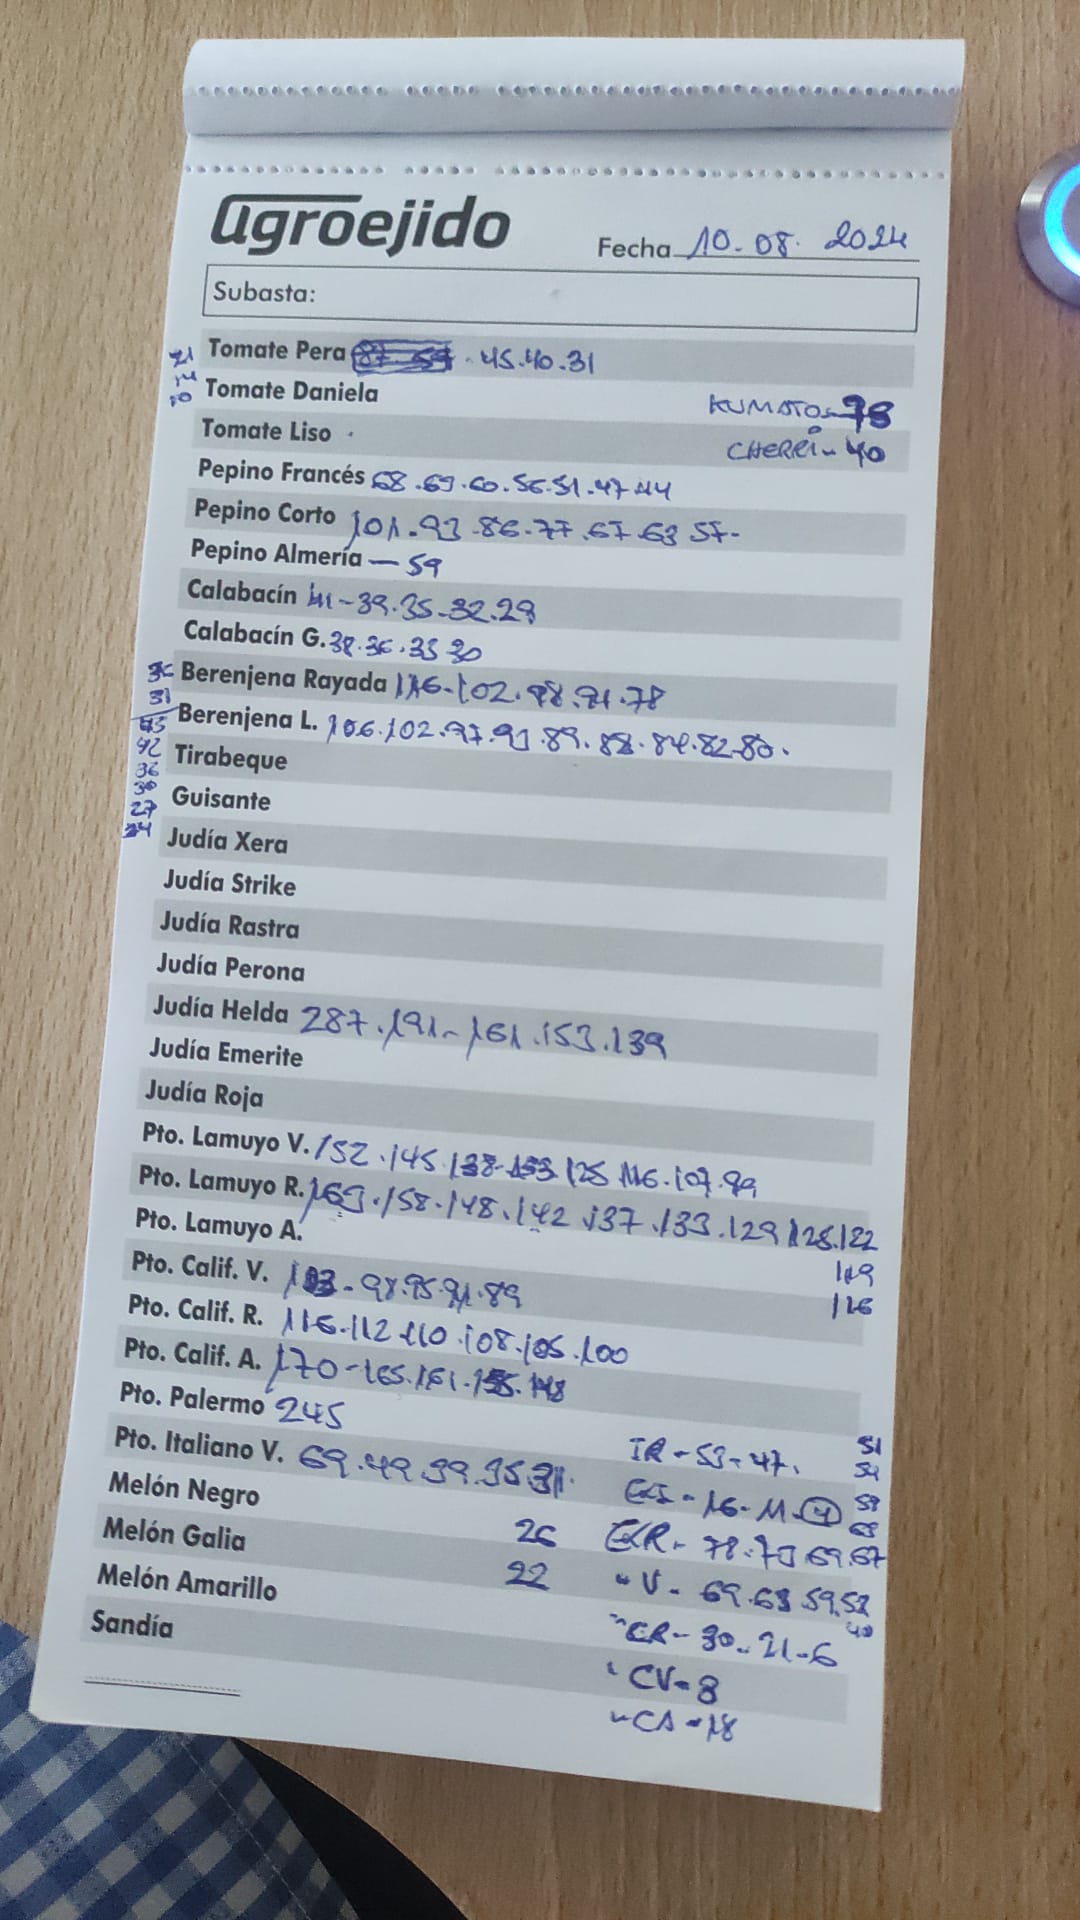 agroejido
Fecha 10-08-2024
Subasta:
Tomate Pera 45.40.31
21
Tomate Daniela
KUMATO-78
Tomate Liso
CHERRI-40
Pepino Francés 68.69.60.56.51.47.44
Pepino Corto 101.93.86.77.67.63 57-
Pepino Almería — 59
Calabacín 41-39.35-32.29
Calabacín G. 38.36.33 30
36 Berenjena Rayada 116-102.98.91.78
31
Berenjena L. 106.102.97.93.89.88.84.82.80.
45
42 Tirabeque
36
30 Guisante
27
24
Judía Xera
Judía Strike
Judía Rastra
Judía Perona
Judía Helda 287.191-161.153.139
Judía Emerite
Judía Roja
Pto. Lamuyo V. 152.145.138-133.125.116.107.99
Pto. Lamuyo R. 169.158.148.142.137.133.129.125.122
Pto. Lamuyo A.
119
116
Pto. Calif. V. 103-98.95.91.89
Pto. Calif. R. 116.112.110.108.105.100
Pto. Calif. A. 170-165.161.155.148
Pto. Palermo 245
IR-53-47.
51
Pto. Italiano V. 69.49.39.35.31.
54
EXI-16-11-4
59
Melón Negro
68
26 EXR-78.73 69.67
Melón Galia
22 " V-69.63 59.52
Melón Amarillo
40
" CR-30-21-6
Sandía
" CV-8
" CA-18